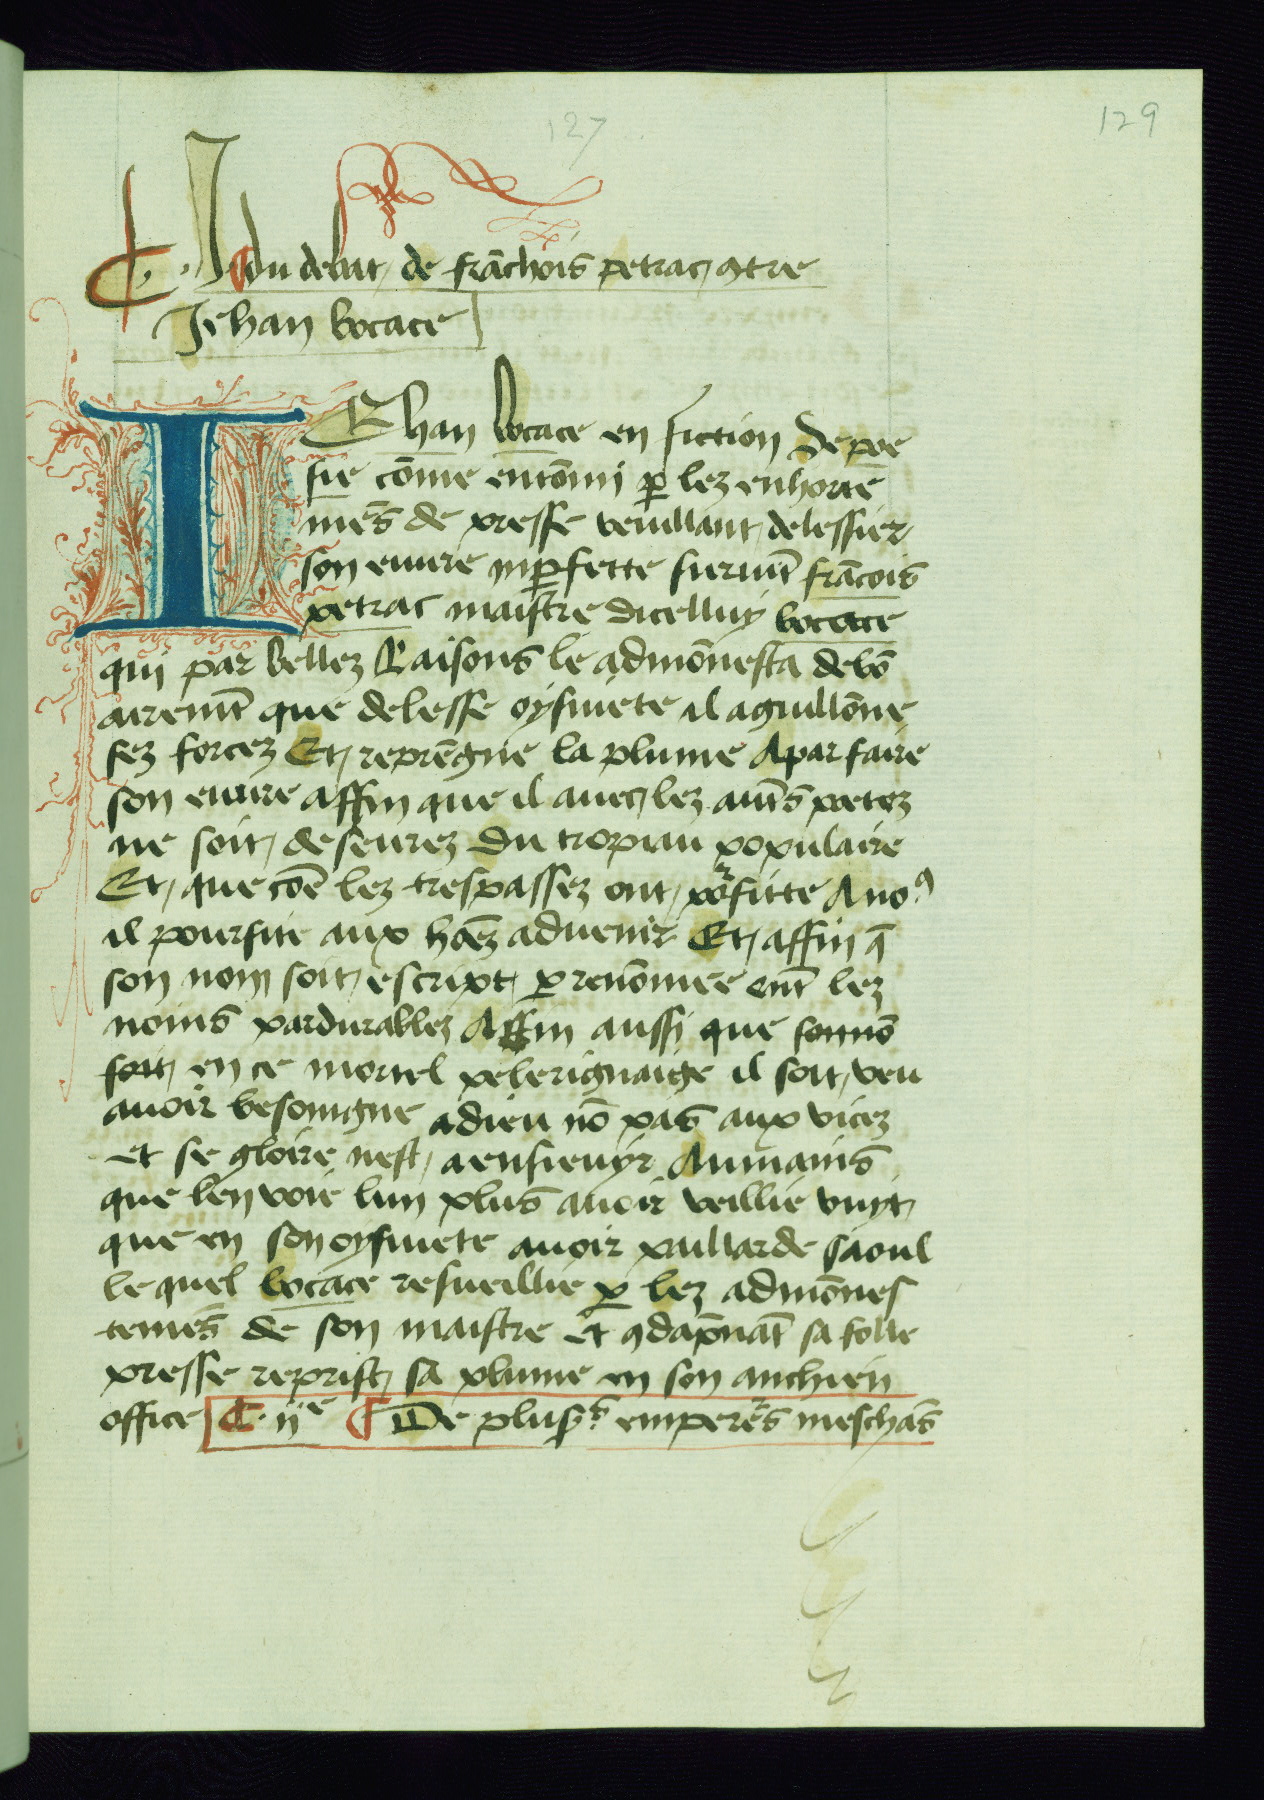 127
129
C · J · Du debat de frãchois petrac 9tre
Jehan bocace
IEhan bocace en fiction de poe
sie cõme entõmi ꝑ lez enhorte
mẽs de presse veuillant delessier
son euure inꝑfette suruiñt frãcois
petrac maistre dicelluy bocace
qui par bellez Raisons le admõnesta debõ
airemñt que delesse oysiuete il aguillõne
sez forcez Et reprẽgne la plume Aparfaire
son euure affin que il auec lez aut̃s poetez
ne soit deseurez du tropiau populaire
Et que cõe lez trespassez ont porfitte A noꝰ
il pourfite aux hõez aduenir Et affin q̃
son nom soit escript ꝑ renõmee ent̃ lez
noms pardurablez Affin aussi que son nõ
soit en ce mortel pelerignaige il soit veu
auoir besongne a dieu nõ pas aux vicez
et se gloire nest a ensieuyr Aumains
que len voie lun plus auoir veillie vuyt
que en son oysiuete auoir paillarde saoul
le quel bocace resueillie ꝑ lez admõnes
temẽs de son maistre et 9dãpnãt sa folle
presse reprist sa plume en son anchien
office C · ijᵉ De plusʳˢ emperẽs meschãs